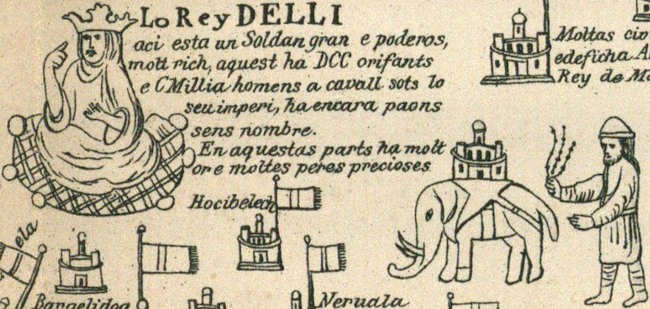 Lo Rey DELLI
aci esta un Soldan gran e poderos,
molt rich, aquest ha DCC orifants
e C Millia homens a cavall sots lo
seu imperi, ha encara paons
sens nombre.
En aquestas parts ha molt
or e moltes peres precioses
Moltas ciu
edeficha A
Rey de Ma
Hocibelech
ela
Bargelidoa
Neruala